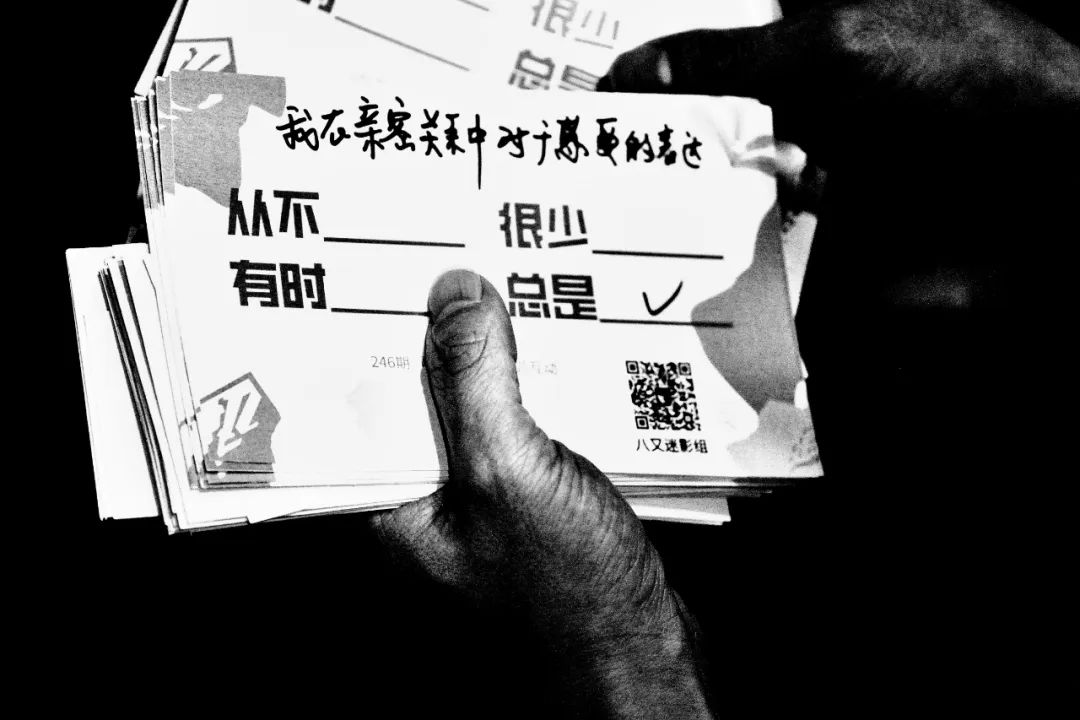 很少
总是
我在亲密关系中对于感受的表达
从不 很少
有时 总是 ✓
246期 互动
八又迷影组